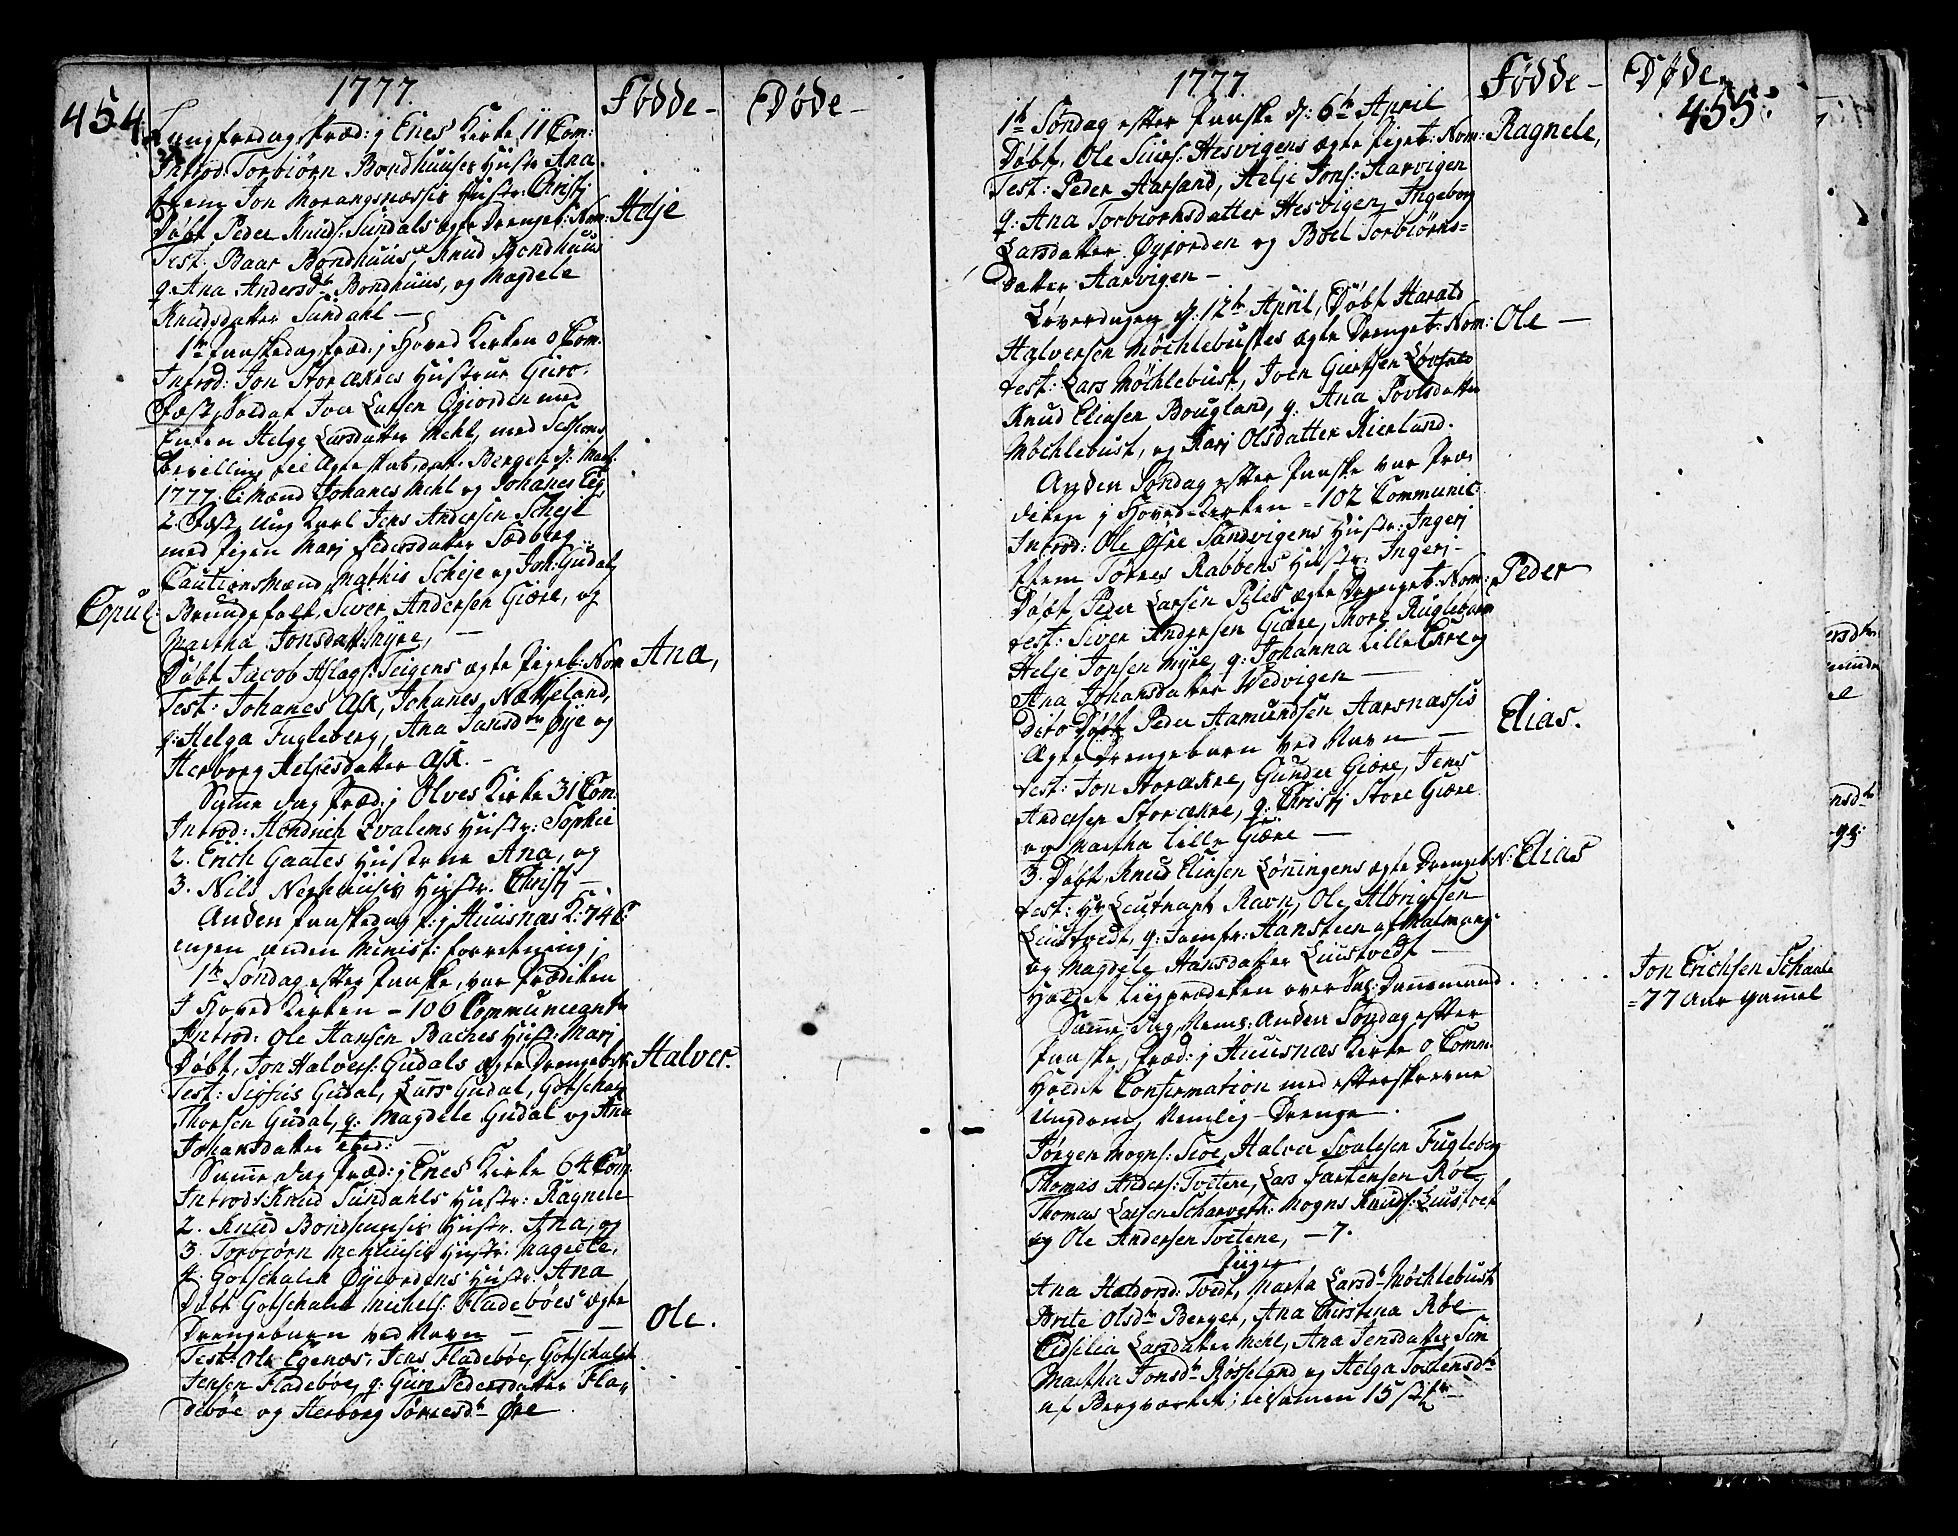 454
1777.
Fødde-
Døde-
Langfredag, Præd: j Enes Kirke 11 Com:
Introd: Torbiørn Bondhuuses Hustr: Ana.
Item Jon Morangsnæssis Hustr: Christj
Døbt Peder Knuds: Sundals ægte Drengeb: Nom: Helje
Test: Baar Bondhuus, Knud Bondhuus
q: Ana Andersdtr Bondhuus, og Magdele
Knudsdatter Sundahl —
1te Paaskedag, Præd: j Hoved Kirken 0 Com:
Introd: Jon Storækres Hustrue Guro.
Fæst: Soldat Iver Larsen Øyiorden med
Enken Helge Larsdatter Mehl, med Sessions
bevilling til Ægteskab, dat: Bergen d: Mart:
1777. C: Mænd Johanes Mehl og Johanes Eig
2. Fæst, Ung Karl Jens Andersen Scheje
med Pigen Marj Pedersdatter Sædberg
Cautions Mænd Mathis Scheje og Joh: Gudal
Copul: Brudefolk, Siver Andersen Giære, og
Martha Jonsdatt: Myre, —
Døbt Jacob Aslags: Teigens ægte Pigeb: Nom Ana,
Test: Johanes Ask, Johanes Nætteland,
q: Helga Fugleberg, Ana Jansdtr Øye og
Herborg Heljesdatter Ask. —
Samme dag Præd: j Ølves Kirke 31 Com:
Introd: Hendrich Qvalems Hustr: Sophie
2. Erich Gaates Hustrue Ana, og
3. Nils Nerhuusis Hustr: Christj —
Anden Paaskedag P: j Huusnæs K: 74 C:
ingen anden Minist: forretning j
1te Søndag efter Paaske, var Prædiken
J Hoved Kirken - 106 Communicanter
Introd: Ole Hansen Baches Hust: Marj
Døbt, Jon Halvers: Gudals ægte Drengeb: N: Halver.
Test: Sjfuis Gudal, Lars Gudal, Gotschalch
Thorsen Gudal, q: Magdele Gudal og Ana
Johansdatter ibid: —
Samme dag Præd: j Enes Kirke 64 Com:
Introds: Knud Sundahls Hustr: Ragnele
2. Knud Bondhuusis Hustr: Ana, og
3. Torbiørn Mehuusis Hustr: Magdele,
4. Gotschalch Øyiordens Hustr: Ana
Døbt Gotschalch Michels: Fladebøes ægte
Drengebarn ved Navn — — — Ole.
Test: Ole Egenæs, Jens Fladebøe, Gotschalch
Jensen Fladebøe, q: Guri Pedersdatter Fla-
debøe og Herborg Tørresdtr Øre
1777.
Fødde-
Døde.
455.
1te Søndag efter Paaske d: 6te April
Døbt, Ole Siurs: Hesvigens ægte Pigeb: Nom: Ragnele,
Test: Peder Aarsand, Helje Jons: Aarvigen
q: Ana Torbiørnsdatter Hesvigen, Ingeborg
Larsdatter Øyiorden og Boel Torbiørns=
datter Aarvigen —
Løverdagen d: 12te April, Døbt Harald
Halversen Møchlebustes ægte Drengeb: Nom: Ole —
test: Lars Møchlebust, Joen Giertsen Løvfnes
Knud Eliasen Bougland, q: Ana Povlsdatter
Møchlebust, og Karj Olsdatter Kierland.
Anden Søndag efter Paaske var Præ-
diken j Hoved-Kirken = 102 Communic:
Introd: Ole Øvre Sandvigens Hustr: Ingerj
Item Tørres Rabbens Hustr: Ingerj —
Døbt, Peder Larsen Pyles ægte Drengeb: Nom: Peder
test: Siver Andersen Giære, Thore Fugleberg
Helje Jonsen Myre, q: Johanna Lille Ekre og
Ana Johansdatter Wedvigen —
Dito Døbt Peder Aamundsen Aarsnæssis
Ægte Drengebarn ved Navn — Elias.
test: Jon Storækre, Gunder Giære, Jens
Andersen Storækre, q: Christj Store Giære
og Martha Lille Giære —
3. Døbt, Knud Eliasen Lønningens ægte Drengeb: N: Elias
test: Hr Leutnant Ravn, Ole Albrigtsen
Liustvedt, q: Jomfr: Hansteen af Malmang:
og Magdele Hansdatter Liustvedt —
Holdet Liigprædeken over Sal: Dannemand . . . . Jon Erichsen Schaale
=77 Aar gamel
Samme dag, Nemlig: Anden Søndag efter
Paaske, Præd: j Huusnæs Kirke 0 Comm:
Holdet Confirmation med efterskrevne
Ungdom, Nemlig - Drenge —
Jørgen Mogns: Sioe, Halver Svalesen Fugleberg
Thomas Anders: Tvetene, Lars Partensen Røe,
Thomas Larsen Scharveth: Mogns Knuds: Liustvet
og Ole Andersen Tvetene, — 7.
Piiger
Ana Haldord: Tvedt, Marta Larsdtr Møchlebust
Brite Olsdtr Berger, Ana Christina Røe
Cidsilia Larsdatter Mehl, Ana Jensdatter Sin
Martha Jonsdtr Røsseland og Helga Tostensdtr
af Bergværket; tilsamen 15 Stkr